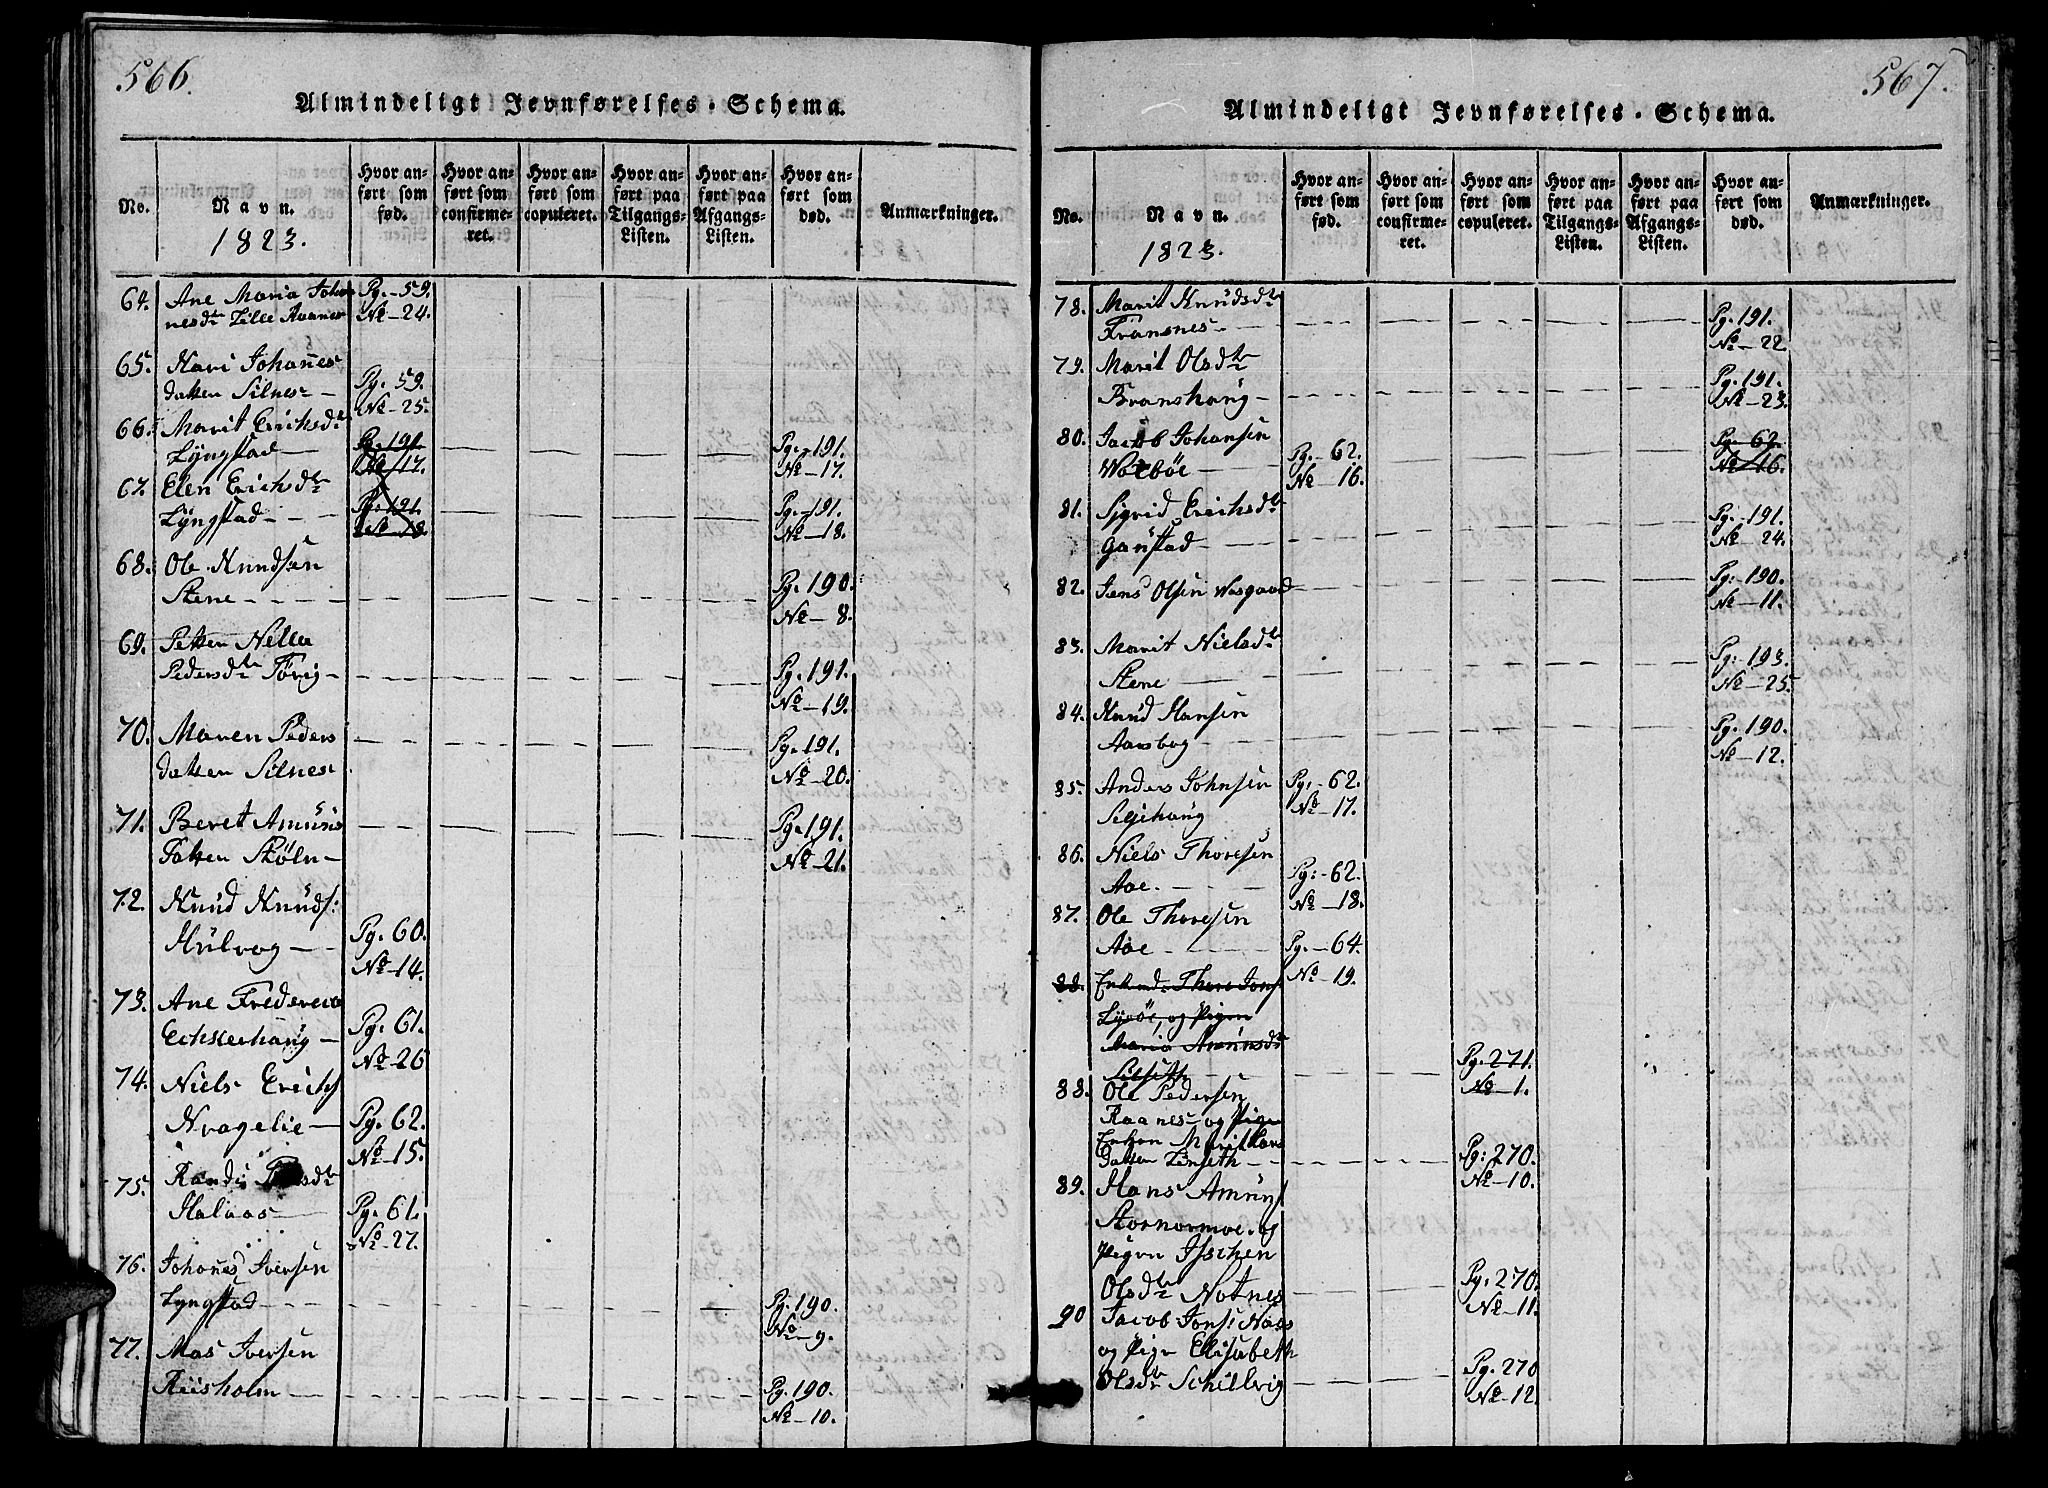 566.
Almindeligt Jevnførelses-Schema.
No.
Navn.
1823.
Hvor anført som fød.
Hvor anført som confirmeret.
Hvor anført som copuleret.
Hvor anført paa Tilgangs-Listen.
Hvor anført paa Afgangs-Listen.
Hvor anført som død.
Anmærkninger.
64. Ane Maria Johan Pg. 59.
nesdtr Lille No 24.
65. Kari Johanes
datter Silnes Pg. 59.
No 25.
66. Marit Erichsdtr
Lyngstad Pg. 191. Pg. 191.
No 17. No 17.
67. Elen Erichsdtr
Lyngstad Pg. 191. Pg. 191.
No 18. No 18.
68. Ole Knudsen
Stene Pg. 190.
No 8.
69. Petter Nella
Pedersdtr Pg. 191.
No 19.
70. Maren Peders Pg. 191.
datter Silnes No 20.
71. Beret Amuns Pg. 191.
datter No 21.
72. Knud Knuds:
Hulvog Pg. 60.
No 14.
73. Ane Frederica
Echkerhaug Pg. 61.
No 26
74. Niels Erichs
Pg. 62.
No 15.
75. Randi
Halaas Pg. 61.
No 27.
76. Johanes Iversen
Lyngstad Pg. 190.
No 9.
77. Mas Iversen
Riisholm Pg. 190.
No 10.
567.
Almindeligt Jevnførelses-Schema.
No.
Navn.
1823.
Hvor anført som fød.
Hvor anført som confirmeret.
Hvor anført som copuleret.
Hvor anført paa Tilgangs-Listen.
Hvor anført paa Afgangs-Listen.
Hvor anført som død.
Anmærkninger.
78. Marit Knudsdtr
Fransnes Pg. 191.
No 22.
79. Marit Olsdtr
Branshaug Pg. 191.
No 23.
80. Jacob Johansen
Pg. 62. Pg. 62.
No 16. No 16.
81. Sigrid Erichsdtr
Gaustad Pg. 191.
No 24.
82. Jens Olsen Pg: 190.
No 11.
83. Marit Nielsdtr
Stene Pg: 193.
No 25.
84. Knud Hansen
Pg. 190.
No 12.
85. Anders Johnsen Pg. 62.
No 17.
86. Niels Thoresen
Aae. Pg: 62.
No 18.
87. Ole Thoresen
Aae Pg. 64.
No 19.
88. Thore Jons:
og Pigen
Maria Amunsdtr
Pg. 271.
No 1.
88. Ole Pedersen
Raanes og Pige
Enken Marit
datter Linseth Pg: 270.
No 10.
89. Hans Amuns
og
Pigen
Olsdtr Notnes Pg. 270.
No 11.
90 Jacob Jons: Naas
og Pige Elisabeth
Olsdtr Pg. 270
No 12